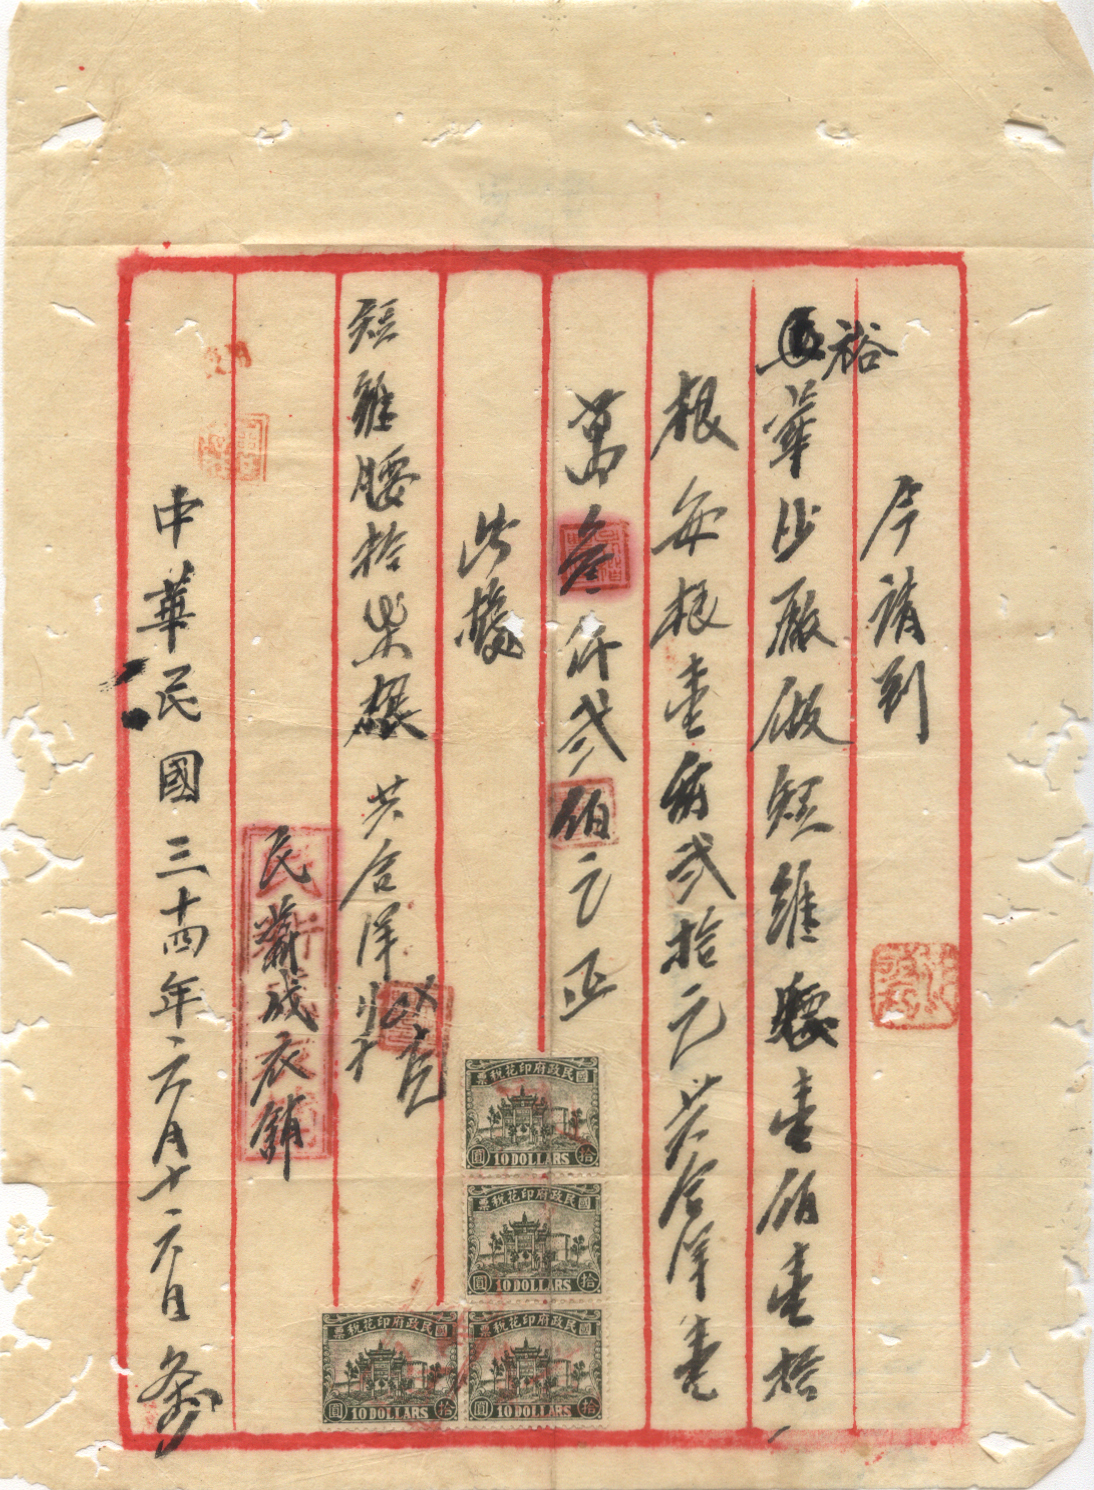 今請到
裕華沙廠做短維腰壹佰壹拾
根每根壹佰貳拾元共合洋壹
萬叁仟貳佰元正
此據
短維腰拾 根 共合洋
民新成衣舖
中華民國三十四年六月十六日 條
國民政府印花稅票
拾 10 DOLLARS 圓
國民政府印花稅票
拾 10 DOLLARS 圓
國民政府印花稅票
拾 10 DOLLARS 圓
國民政府印花稅票
拾 10 DOLLARS 圓